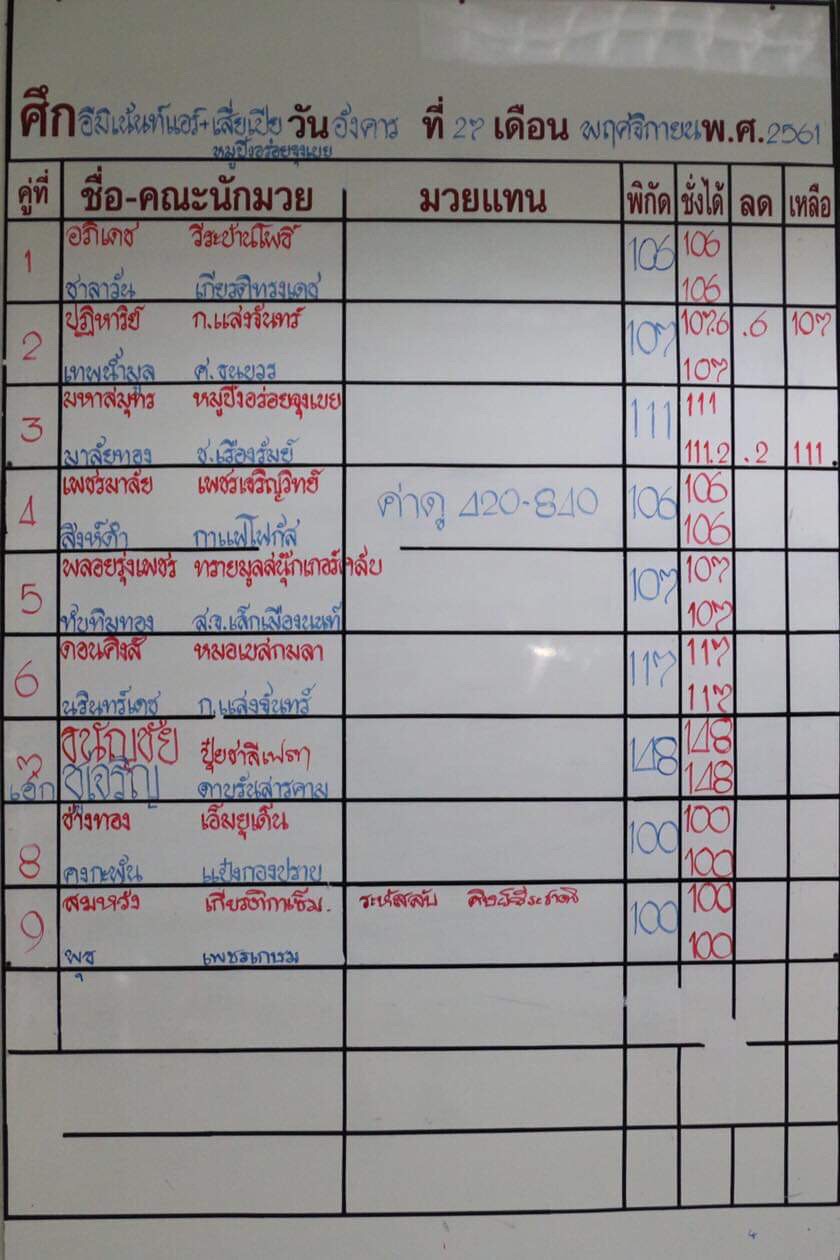 ศึก อีมิเน้นท์แอร์+เสี่ยเปีย วัน อังคาร ที่ 27 เดือน พฤศจิกายน พ.ศ. 2561
หมูปิ้งอร่อยจุงเบย
คู่ที่ ชื่อ-คณะนักมวย มวยแทน พิกัด ชั่งได้ ลด เหลือ
1 อภิเดช วีระป่านโพธิ์ 106 106
ชาลาวัน เกียรติทรงเดช 106
2 ปฏิหาริย์ ก.แสงจันทร์ 107 107.6 .6 107
เทพน้ำมูล ศ.ธนบวร 107
3 มหาสมุทร หมูปิ้งอร่อยจุงเบย 111 111
มาลัยทอง ช.เรืองรัมย์ 111.2 .2 111
4 เพชรมาลัย เพชรเจริญวิทย์ ค่าดู 420-840 106 106
สิงห์ดำ กาแฟโฟกัส 106
5 พลอยรุ่งเพชร ทรายมูลสนุ๊กเกอร์คลับ 107 107
ทับทิมทอง ส.จ.เล็กเมืองนนท์ 107
6 ดอนคิงส์ หมอเบสกมลา 117 117
นรินทร์เดช ก.แสงจันทร์ 117
7 ธนัญชัย ปุ๋ยชาลีเฟรท 148 148
เอก ชูเจริญ ดาบรันสารคาม 148
8 ช้างทอง เอ็มยูเด็น 100 100
คงกะพัน แป๋งกองปราบ 100
9 สมหวัง 100 100
พุธ เพชรเกษม 100